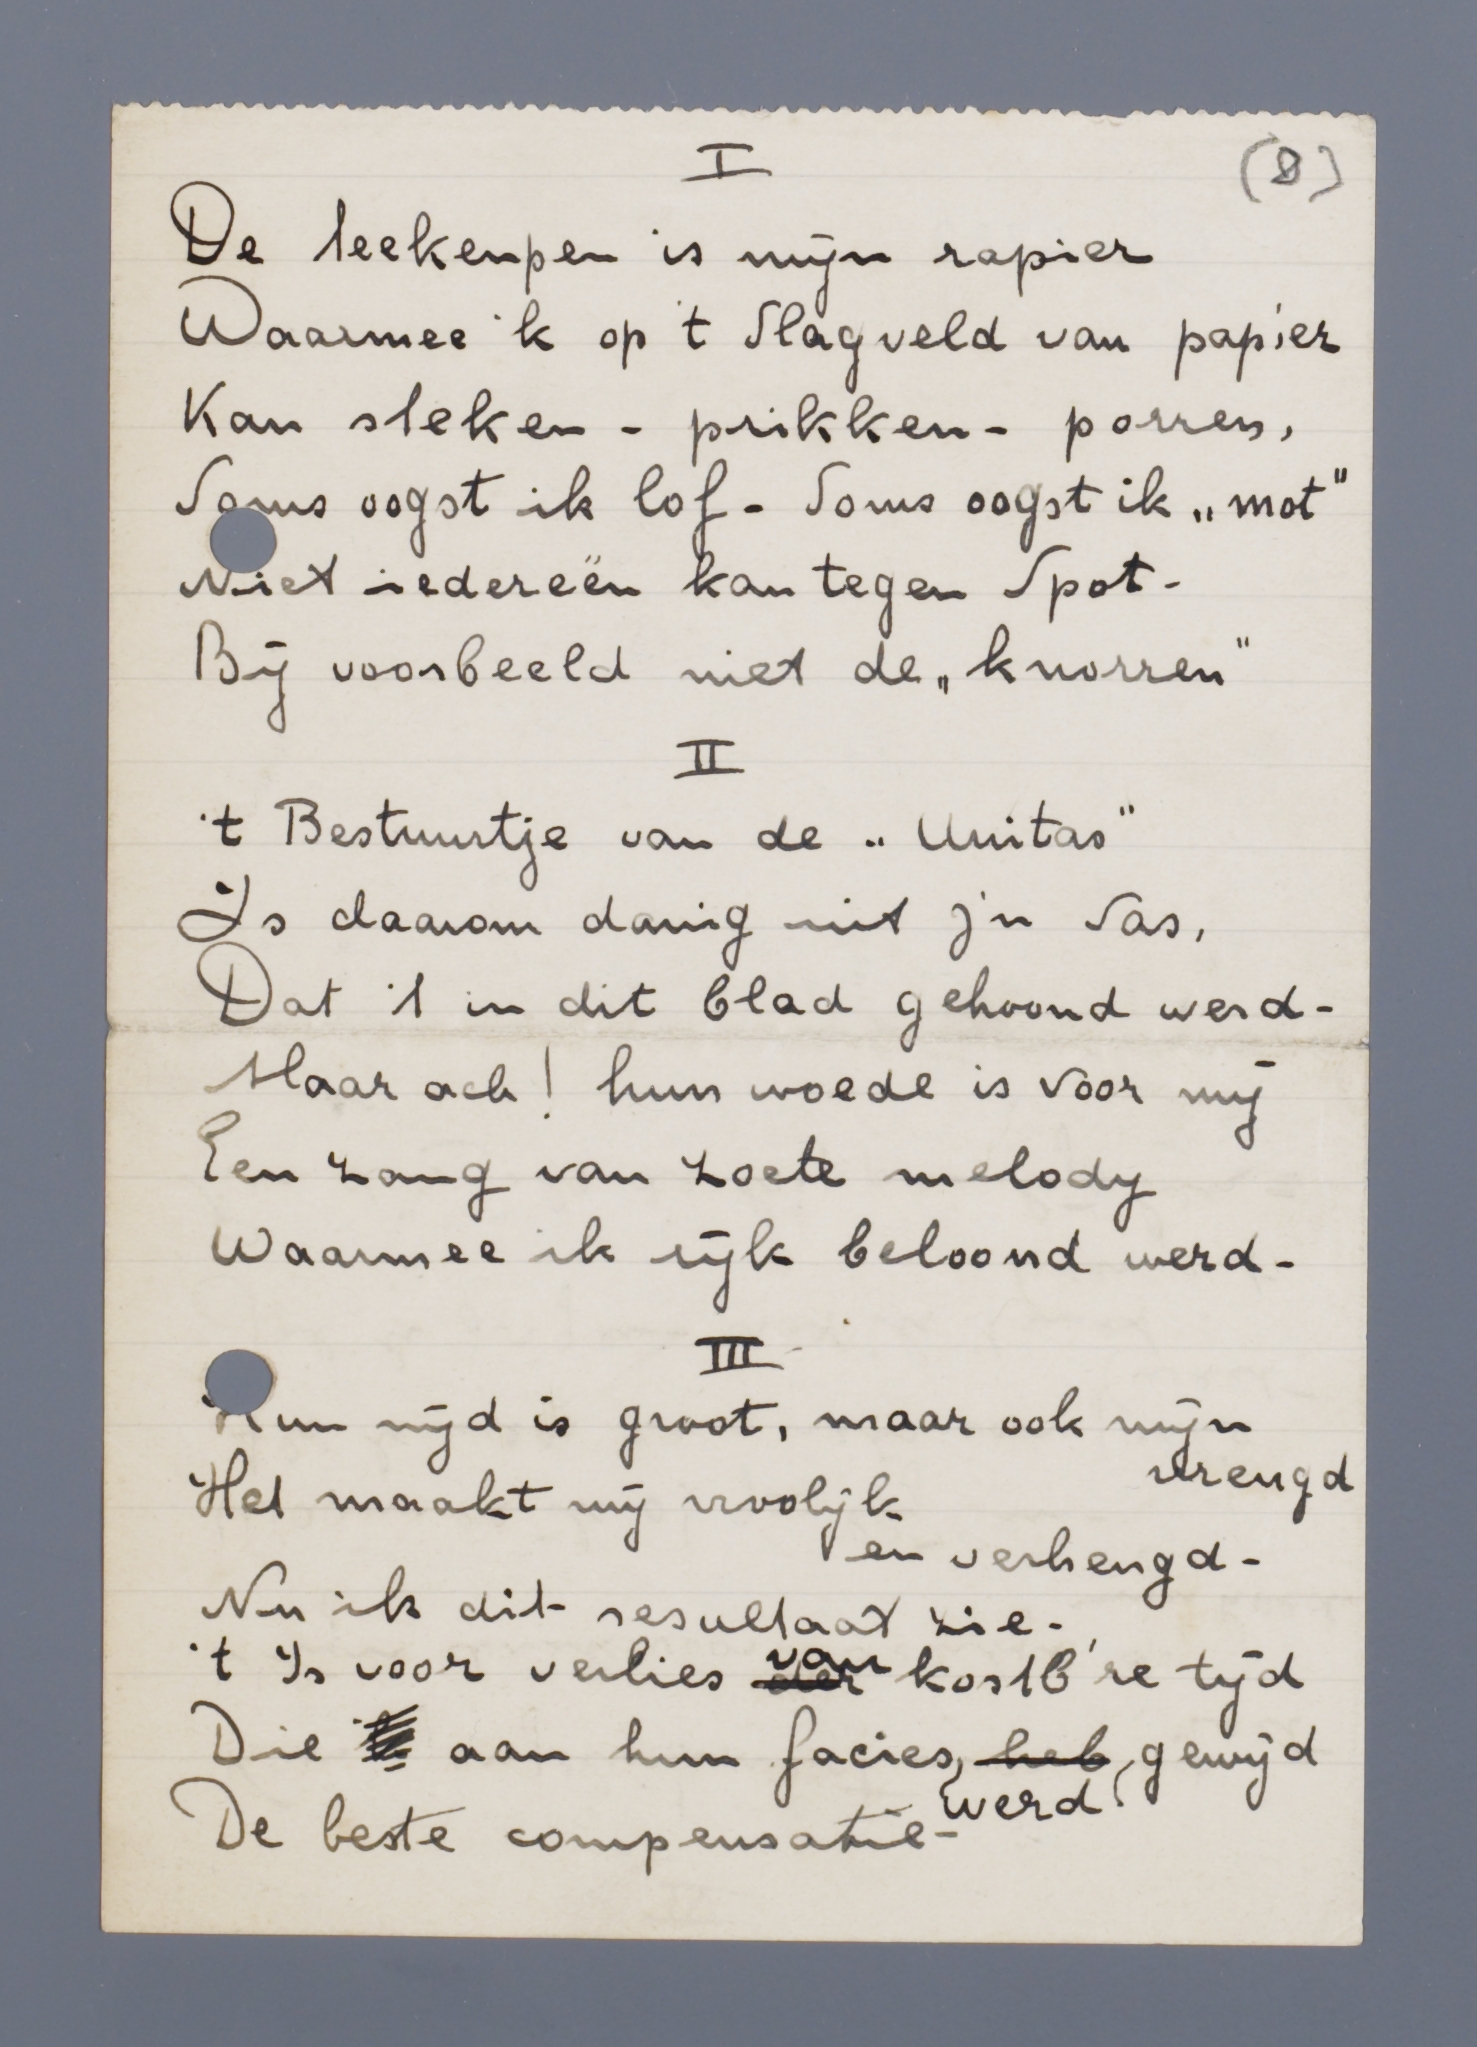 (8)
I
De teekenpen is mijn rapier
Waarmee 'k op 't slagveld van papier
Kan steken - prikken - porren,
Soms oogst ik lof - Soms oogst ik „mot"
Niet iedereën kan tegen spot -
Bij voorbeeld niet de „knorren"
II
't Bestuurtje van de „Unitas"
Is daarom danig uit z'n sas,
Dat 't in dit blad gehoond werd -
Maar ach! hun woede is voor mij
Een zang van zoete melody
Waarmee ik rijk beloond werd -
III
Hun nijd is groot, maar ook mijn
vreugd
Het maakt mij vroolijk
en verheugd -
Nu ik dit resultaat zie -
van
't Is voor verlies der kostb're tijd
Die aan hun facies, heb, gewijd
werd
De beste compensatie -